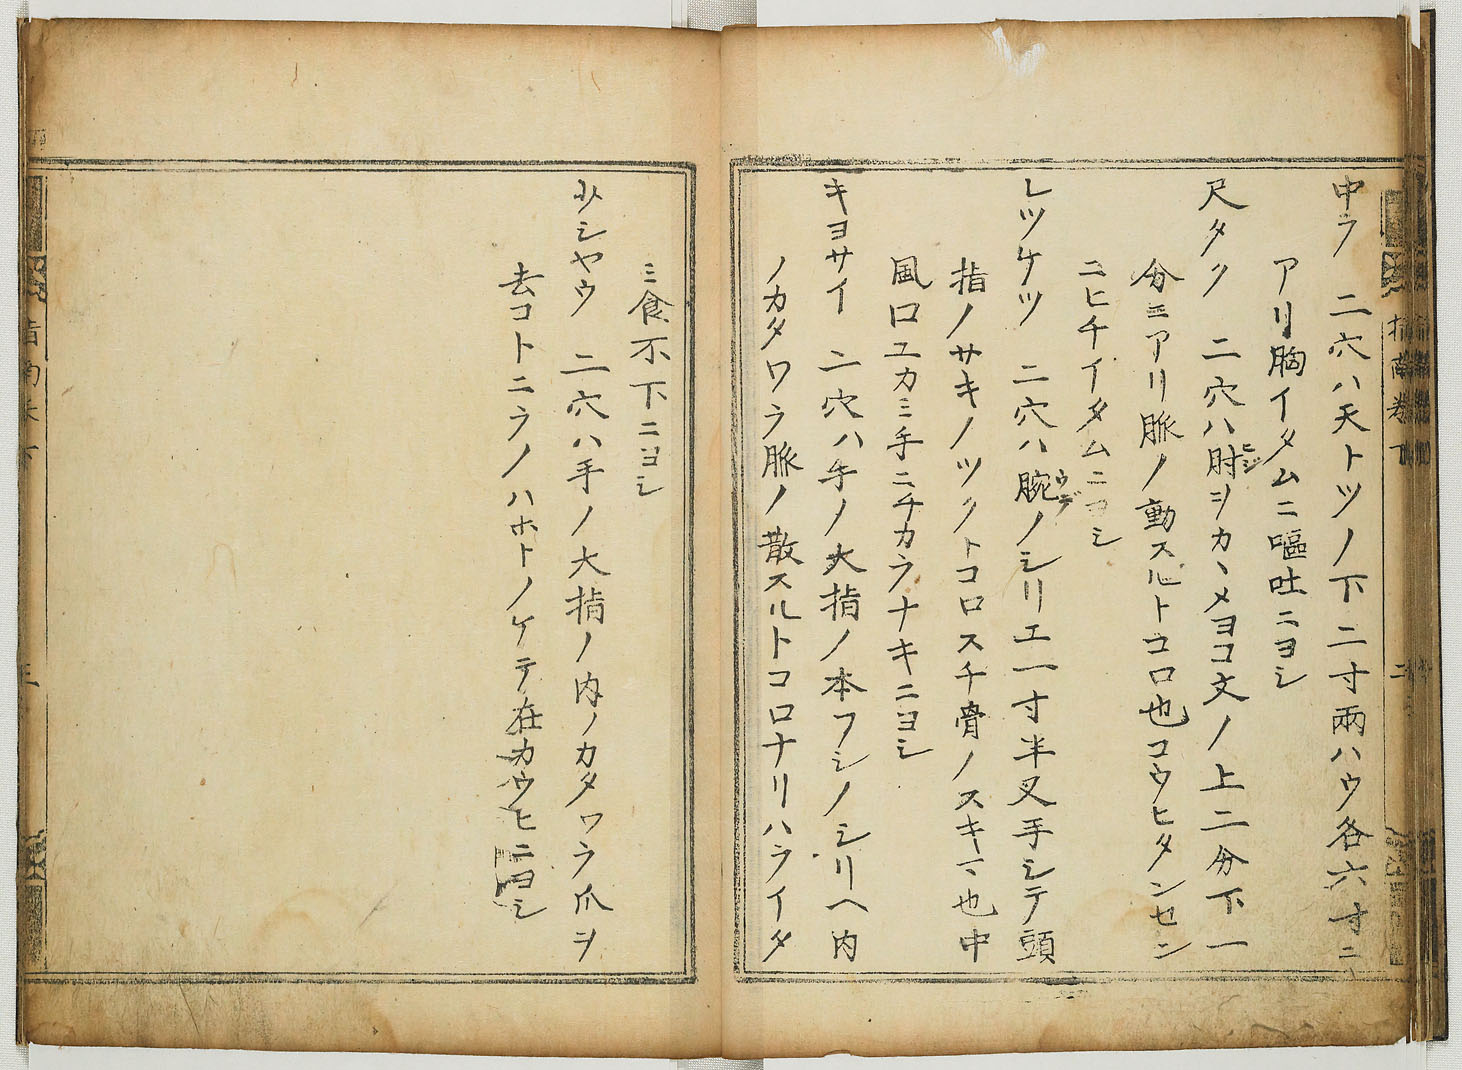 中フ　二穴ハ天トツノ下二寸兩ハウ各六寸ニ
アリ胸イタムニ嘔吐ニヨシ
尺タク　二穴ハ肘ヲカヽメヨコ文ノ上二分下一
ヒジ
分ニアリ脈ノ動スルトコロ也コウヒタンセン
ニヒチイタムニヨシ
レツケツ　二穴ハ腕ノシリエ一寸半叉手シテ頭
ウデ
指ノサキノツクトコロスチ骨ノスキマ也中
風口ユカミ手ニチカラナキニヨシ
キヨサイ　二穴ハ手ノ大指ノ本フシノシリヘ内
ノカタワラ脈ノ散スルトコロナリハライタ
ミ食不下ニヨシ
少シヤウ　二穴ハ手ノ大指ノ内ノカタワラ爪ヲ
去コトニラノハホトノケテ在カウヒニヨシ
指南卷下
二